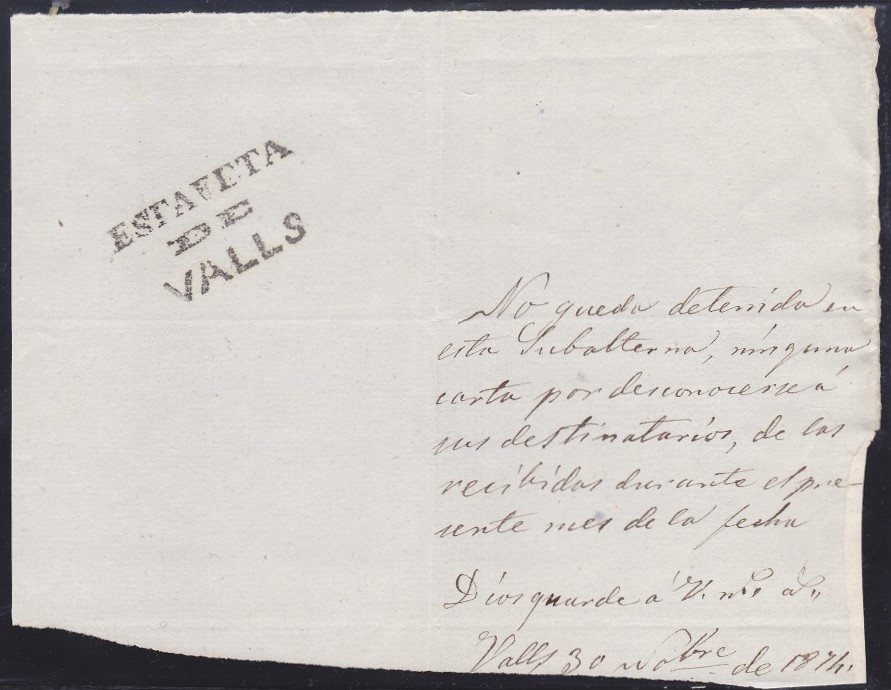 ESTAFETA
DE
VALLS
No queda detenida en
esta Subalterna, ninguna
carta por desconocerse á
sus destinatarios, de las
recibidas durante el pre-
sente mes de la fecha
Dios guarde á V. ms. as.
Valls 30 Nobre de 1874.